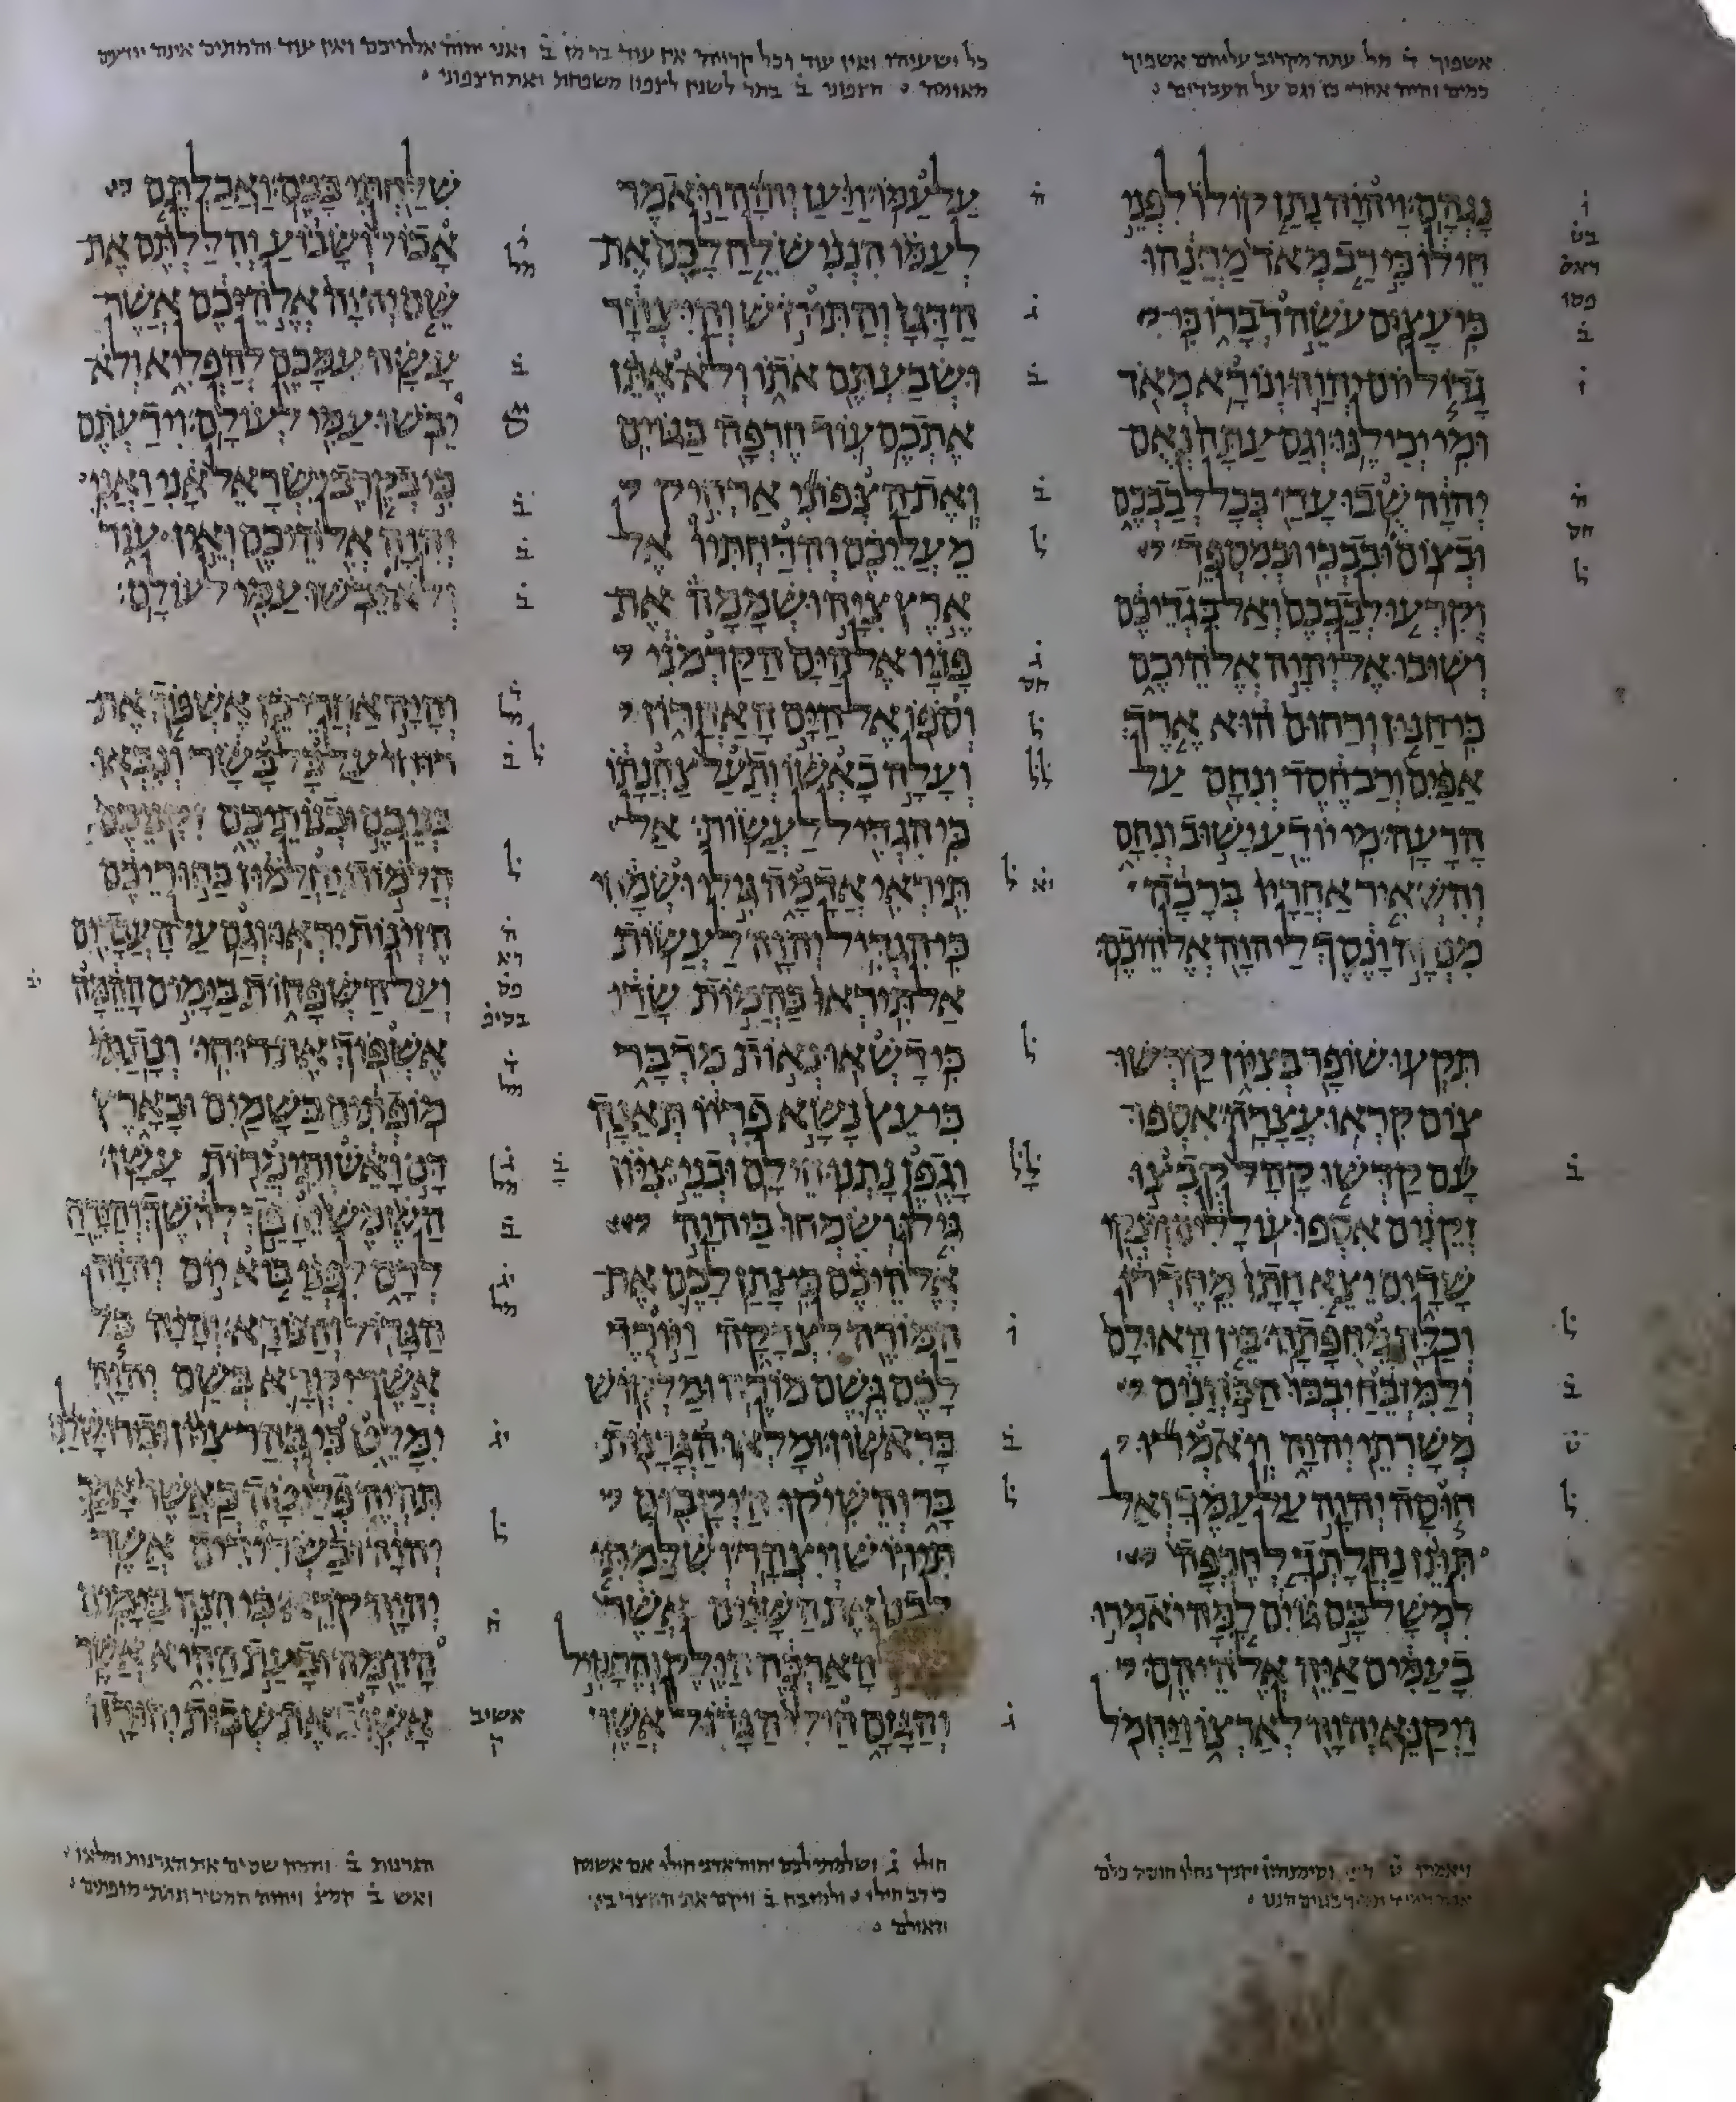 אשפוך ד מל עתה מקרוב עליהם אשפוך
כמים והיה אחרי כן וגם על העבדים
כל ישעיהו ואין עוד וכל קריה אין עוד בר מן ב ואני יהוה אלהיכם ואין עוד והמתים אינם יודעים
מאומה הצפוני ב בתר לשנין לצפון משפחת ואת הצפוני
נגהם ויהוה נתן קולו לפני
חילו כי רב מאד מחנהו
כי עצום עשה דברו כי
גדול יום יהוה ונורא מאד
ומי יכילנו וגם עתה נאם
יהוה שבו עדי בכל לבבכם
ובצום ובבכי ובמספד
וקרעו לבבכם ואל בגדיכם
ושובו אל יהוה אלהיכם
כי חנון ורחום הוא ארך
אפים ורב חסד ונחם על
הרעה מי יודע ישוב ונחם
והשאיר אחריו ברכה
מנחה ונסך ליהוה אלהיכם
תקעו שופר בציון קדשו
צום קראו עצרה אספו
עם קדשו קהל קבצו
זקנים אספו עללים וינקי
שדים יצא חתן מחדרו
וכלה מחפתה בין האולם
ולמזבח יבכו הכהנים
משרתי יהוה ויאמרו
חוסה יהוה על עמך ואל
תתן נחלתך לחרפה
למשל בם גוים למה יאמרו
בעמים איה אלהיהם
ויקנא יהוה לארצו ויחמל
על עמו ויען יהוה ויאמר
לעמו הנני שלח לכם את
הדגן והתירוש והיצהר
ושבעתם אתו ולא אתן
אתכם עוד חרפה בגוים
ואת הצפוני ארחיק
מעליכם והדחתיו אל
ארץ ציה ושממה את
פניו אל הים הקדמני
וספו אל הים האחרון
ועלה באשו ותעל צחנתו
כי הגדיל לעשות אל
תיראי אדמה גילי ושמחי
כי הגדיל יהוה לעשות
אל תיראו בהמות שדי
כי דשאו נאות מדבר
כי עץ נשא פריו תאנה
וגפן נתנו חילם ובני ציון
גילו ושמחו ביהוה
אלהיכם כי נתן לכם את
המורה לצדקה ויורד
לכם גשם מורה ומלקוש
בראשון ומלאו הגרנות
בר והשיקו היקבים
תירוש ויצהר ושלמתי
לכם את השנים אשר
הארבה הילק והחסיל
והגזם חילי הגדול אשר
שלחתי בכם ואכלתם
אכול ושבוע והללתם את
שם יהוה אלהיכם אשר
עשה עמכם להפליא ולא
יבשו עמי לעולם וידעתם
כי בקרב ישראל אני ואני
יהוה אלהיכם ואין עוד
ולא יבשו עמי לעולם
והיה אחרי כן אשפך את
רוחי על כל בשר ונבאו
בניכם ובנותיכם זקניכם
חלמות יחלמון בחוריכם
חזינות יראו וגם על העבדים
ועל השפחות בימים ההמה
אשפוך את רוחי ונתתי
מופתים בשמים ובארץ
דם ואש ותימרות עשן
השמש יהפך לחשך והירח
לדם לפני בוא יום יהוה
הגדול והנורא והיה כל
אשר יקרא בשם יהוה
ימלט כי בהר ציון ובירושלם
תהיה פליטה כאשר אמר
יהוה ובשרידים אשר
יהוה קרא כי הנה בימים
ההמה ובעת ההיא אשר
אשוב את שבות יהודה
אשיב
ק
חילי ג ושלמתי לכם יהוה אדני חילי אם אשמח
כי רב חילי ולמזבח ב ויקם את החצר
הגרנות ב והנה שסים את הגרנות ומלאו
ואש ב קמצ ויהוה המטיר ונתתי מופתים